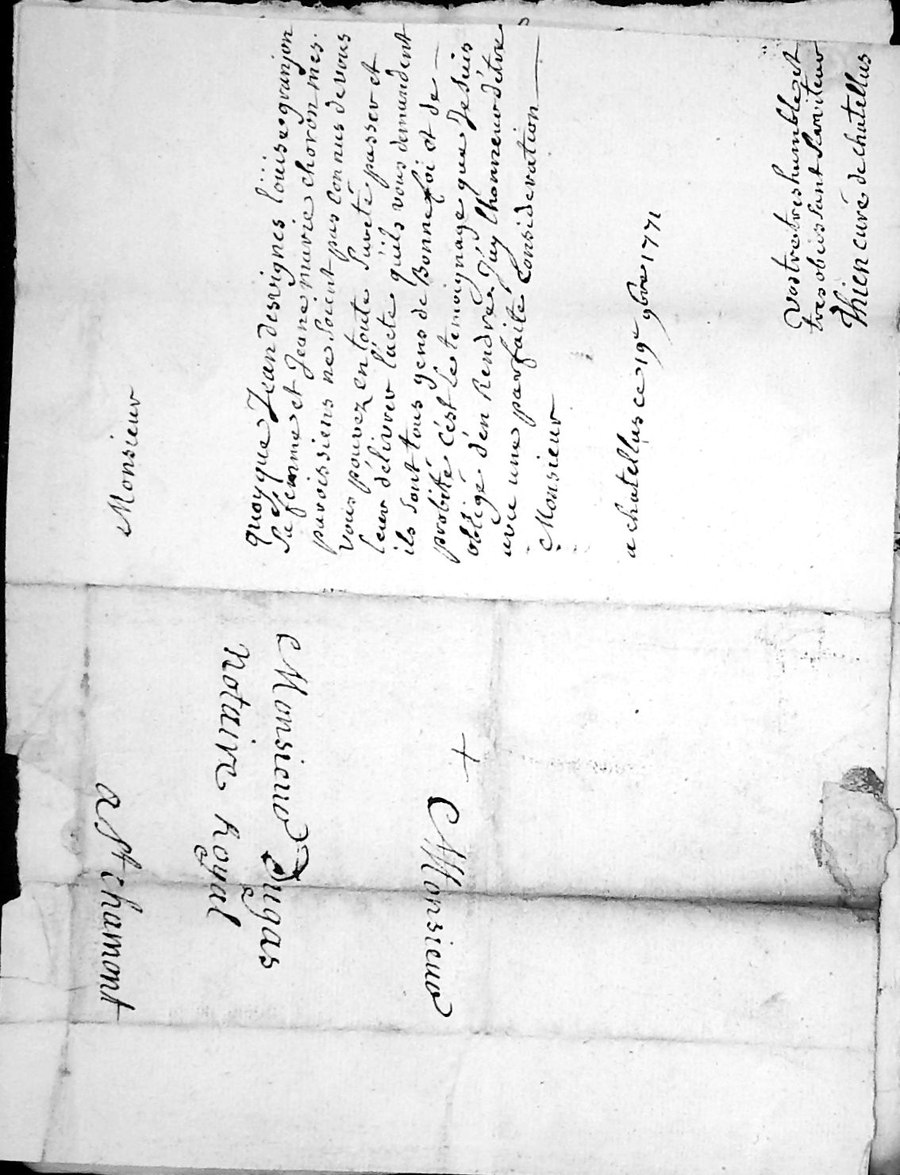 Monsieur
quoyque Jean desvignes loüise granjon
Sa femme et Jeane marie choron mes
paroissiens ne soient pas connus de vous
vous pouvez en toute Sureté passer et
leur délivrer l'acte qu'ils vous demandent
ils sont tous gens de Bonne foi et de
probité c'est le temoignage que Je suis
obligé d'en Rendre J'ay l'honneur d'étre
avec une parfaite Consideration
Monsieur
a chatellus ce 19e 9bre 1771
Vostre tres humble et
tres obeissant Serviteur
Thien curé de chatellus
+
Monsieur
Monsieur Dugas
notaire Royal
a St chamont